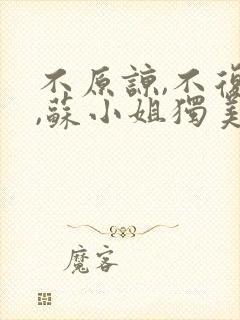 不原諒,不復
,蘇小姐獨美
魔客